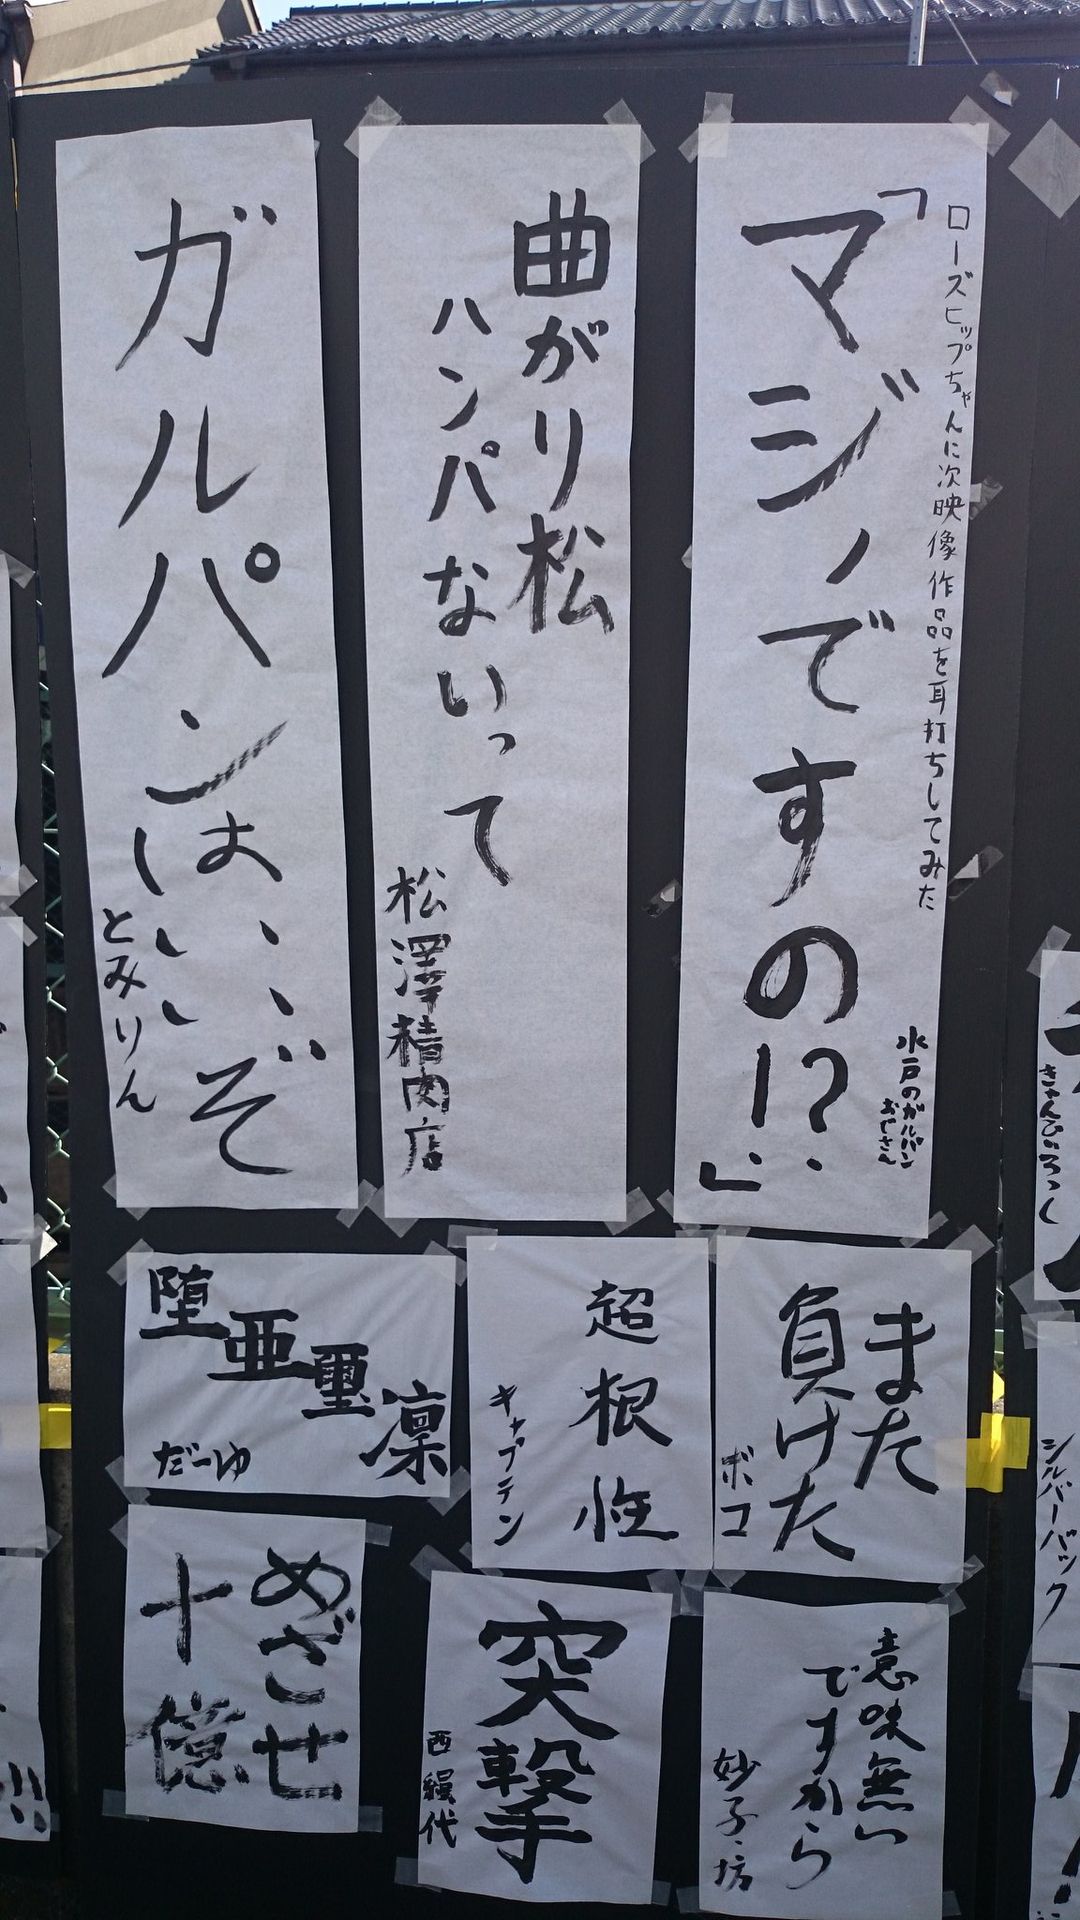 ローズヒップちゃんに次映像作品を耳打ちしてみた
「マジですの!?」
水戸のガルパン
おじさん
曲がり松
ハンパないって
松澤精肉店
ガルパンは、、、ぞ
いいい
とみりん
また
負けた
ボコ
超根性
キャプテン
堕亜璽凜
だーゆ
意味無い
ですから
妙子・坊
突撃
西絹代
めざせ
十億
きゃんでぃろっく
シルバーバック